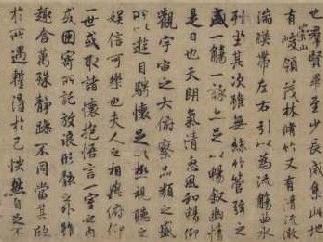 也羣賢畢至少長咸集此地
有崇山峻領茂林脩竹又有清流激
湍暎帶左右引以為流觴曲水
列坐其次雖無絲竹管弦之
盛一觴一詠亦足以暢敘幽情
是日也天朗氣清惠風和暢仰
觀宇宙之大俯察品類之盛
所以遊目騁懷足以極視聽之
娛信可樂也夫人之相與俯仰
一世或取諸懷抱悟言一室之內
或因寄所託放浪形骸之外雖
趣舍萬殊靜躁不同當其欣
於所遇蹔得於己怏然自足不